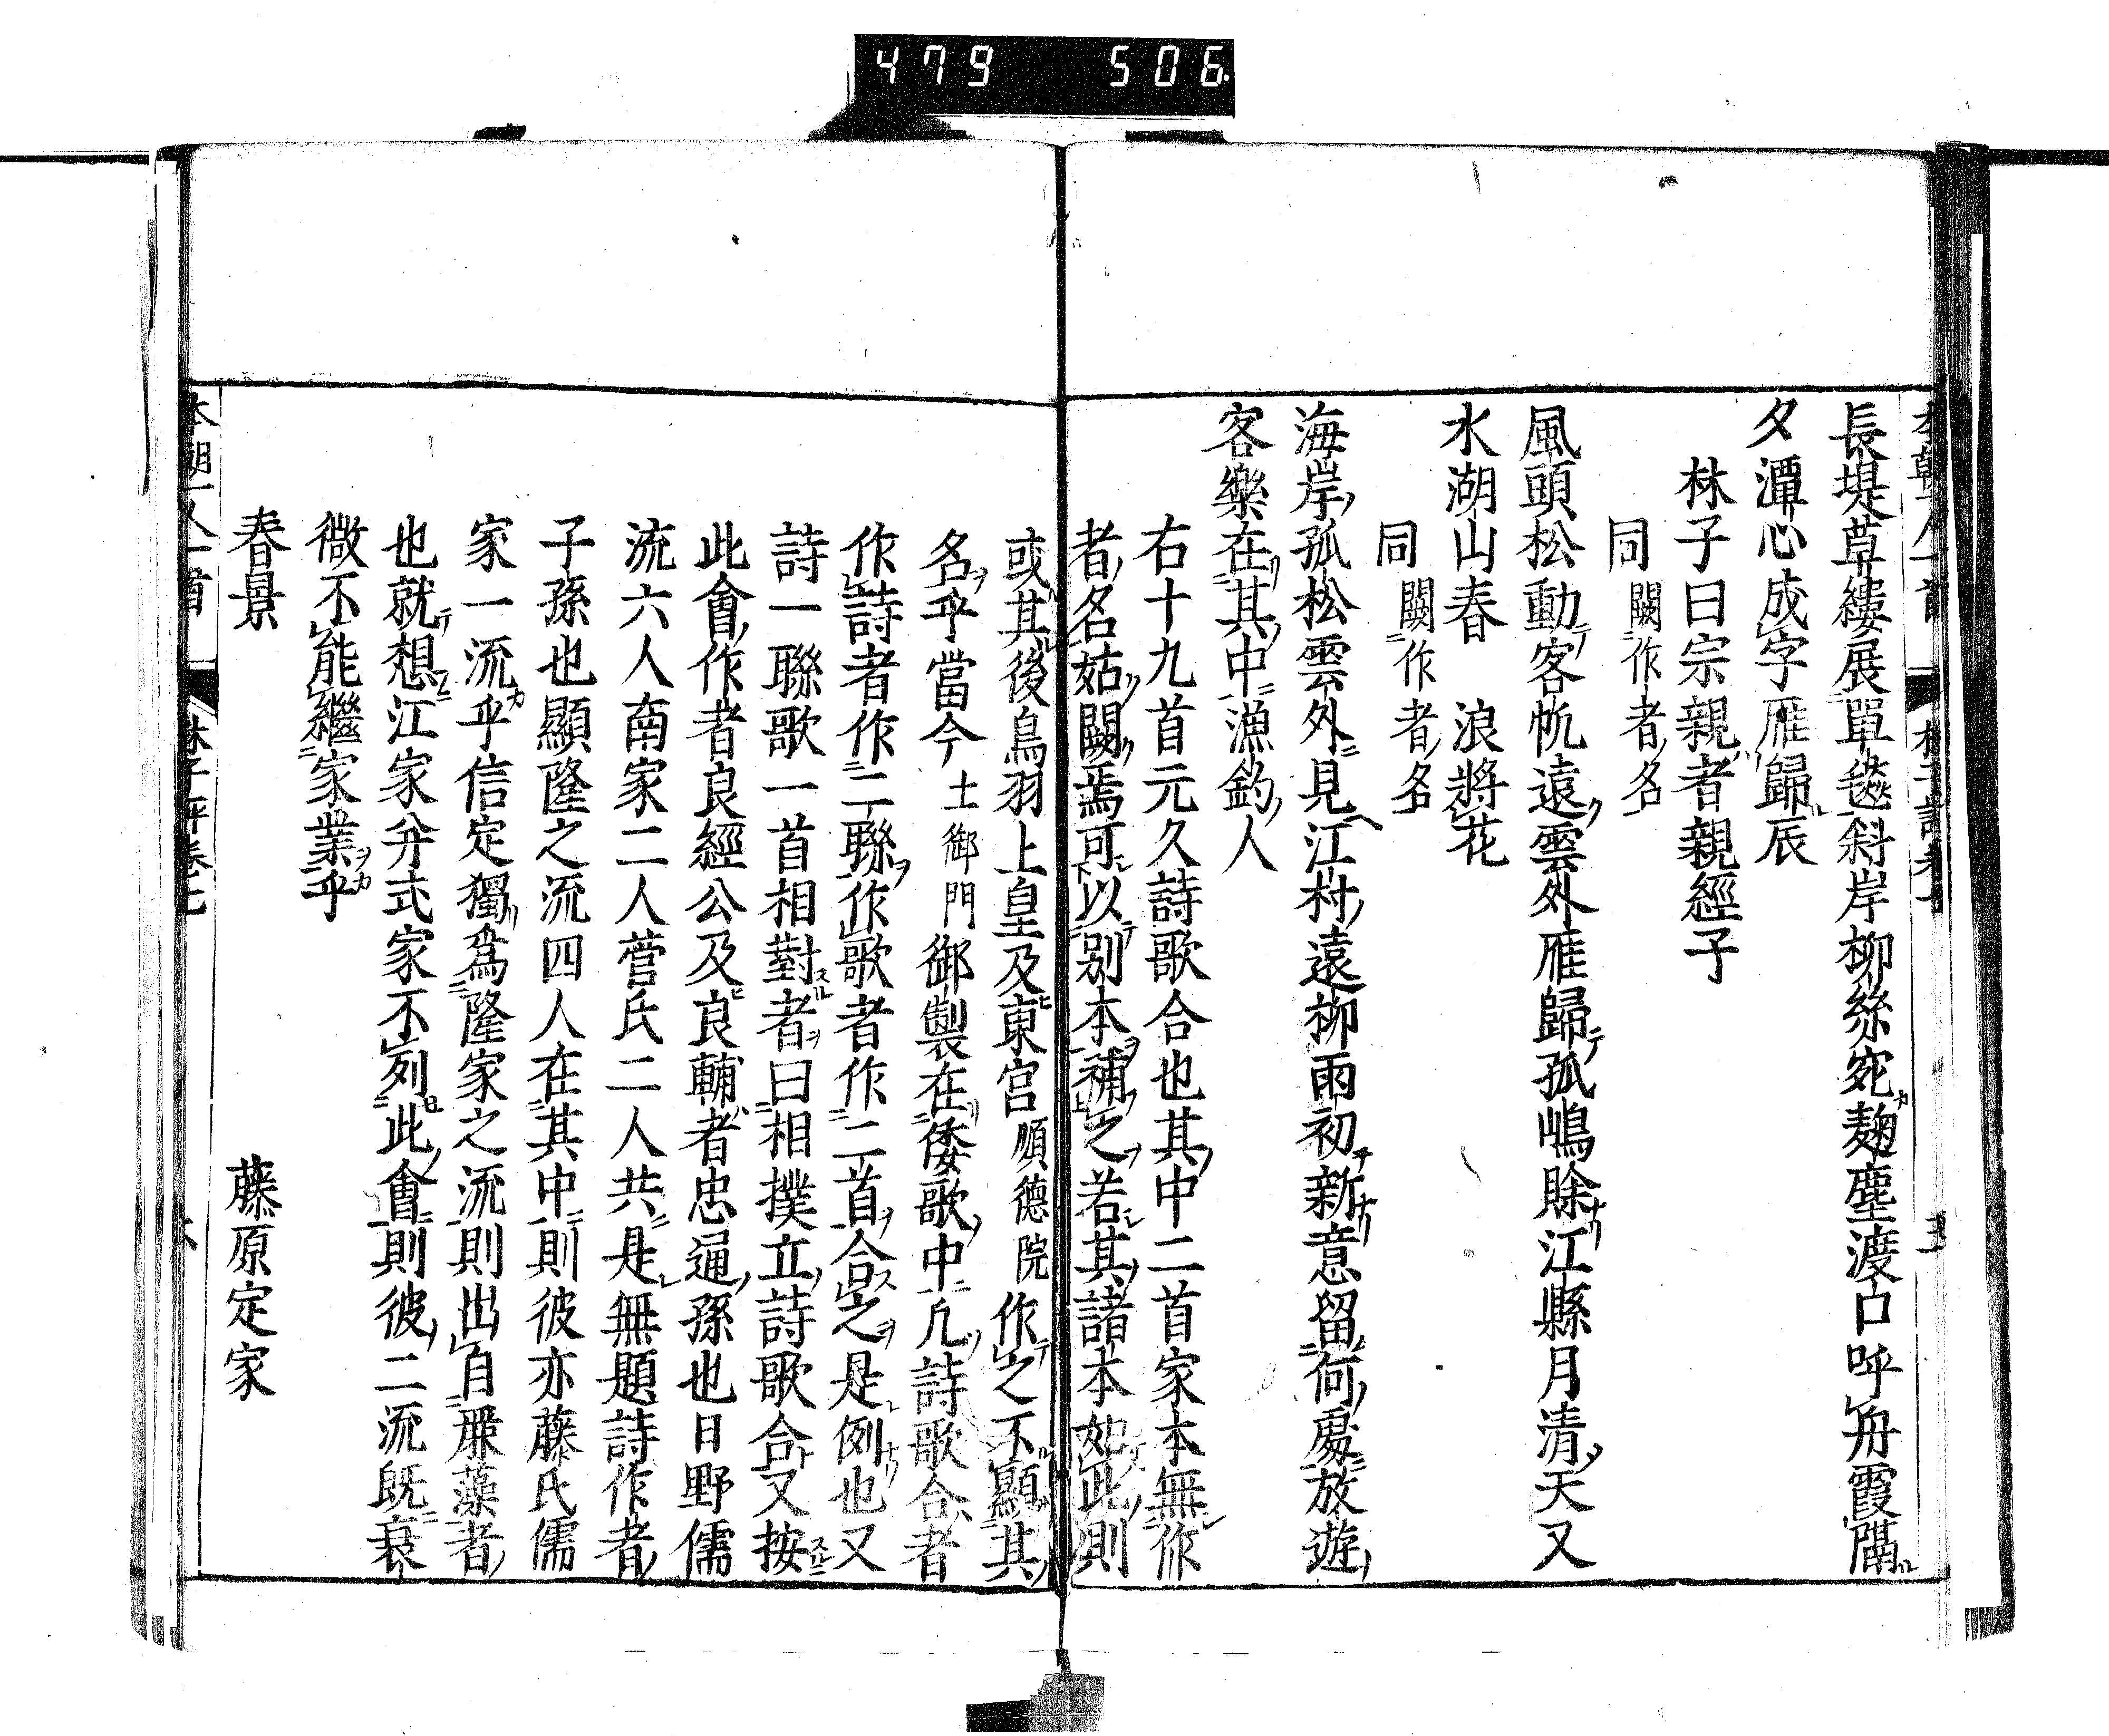 479 506.
長堤草縷展單毯斜岸柳絲宛麹塵渡口呼舟霞隔
夕潭心成字雁歸辰
林子曰宗親者親經子
同 闕作者名
風頭松動客帆遠雲外雁歸孤嶋賖江縣月清天又
水湖山春 浪將花
同 闕作者名
海岸孤松雲外見江村遠柳雨初新意留何處放遊
客樂在其中漁釣人
右十九首元久詩歌合也其中二首家本無作
者名姑闕焉可以别本補之若其諸本如此則
或其後鳥羽上皇及東宮順德院作之不顯其
名乎當今土御門御製在倭歌中凡詩歌合者
作詩者作二聯作歌者作二首合之是例也又
詩一聯歌一首相對者曰相撲立詩歌合又按
此會作者良經公及良輔者忠通孫也日野儒
流六人南家二人菅氏二人共是無題詩作者
子孫也顯隆之流四人在其中則彼亦藤氏儒
家一流乎信定獨爲隆家之流則出自麻藻者
也就想江家并式家不列此會則彼二流既衰
微不能繼家業乎
春景 藤原定家
本朝一人一首 林子評卷七